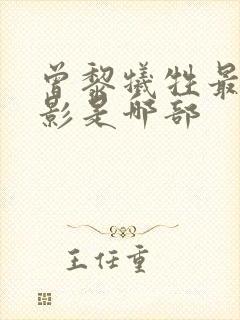 曾黎犠牲最
影是哪部
王任重